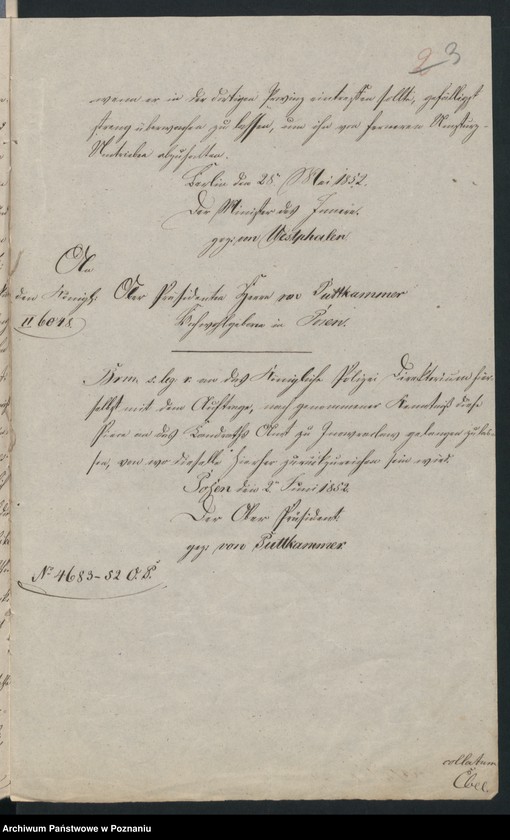 2 3
wenn er in der dortigen Provinz eintreffen sollte, gefälligst
streng überwachen zu lassen, um ihn von ferneren
abzuhalten.
Berlin den 28 Mai 1852.
Der Minister des Innern.
gez: von Westphalen
An
den Königl: Ober Präsidenten Herrn von Puttkammer
II 6028 Hochwohlgeboren in Posen.
an das Königliche Polizei Direktorium hier-
selbst mit dem Auftrage, nach genommener Kenntniß diese
Piece an das Landraths Amt zu Inowraclaw gelangen zu las-
sen, von wo dieselbe hierher zurückzureichen sein wird.
Posen den 2 Juni 1852
Der Ober Präsident.
gez: von Puttkammer.
No 4683-52 O. P.
collatum
Archiwum Państwowe w Poznaniu